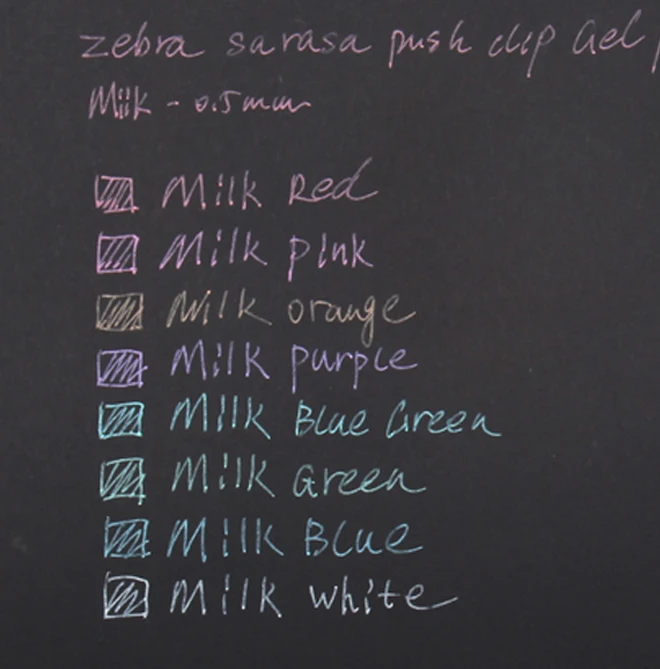 zebra sarasa push clip Gel
Milk - 0.5mm
Milk Red
Milk pink
Milk orange
Milk purple
Milk Blue Green
Milk Green
Milk Blue
Milk white